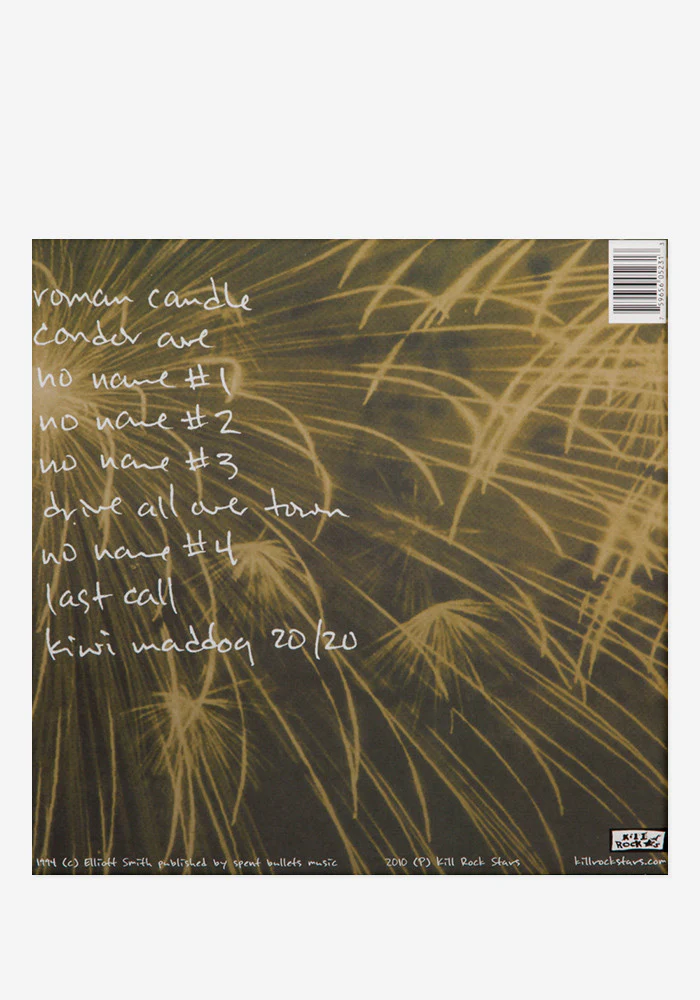 roman candle
condor ave
no name #1
no name #2
no name #3
drive all over town
no name #4
last call
kiwi maddog 20/20
7 59656 05231 3
KILL
ROCK
1994 (c) Elliott Smith published by spent bullets music
2010 (P) Kill Rock Stars
killrockstars.com